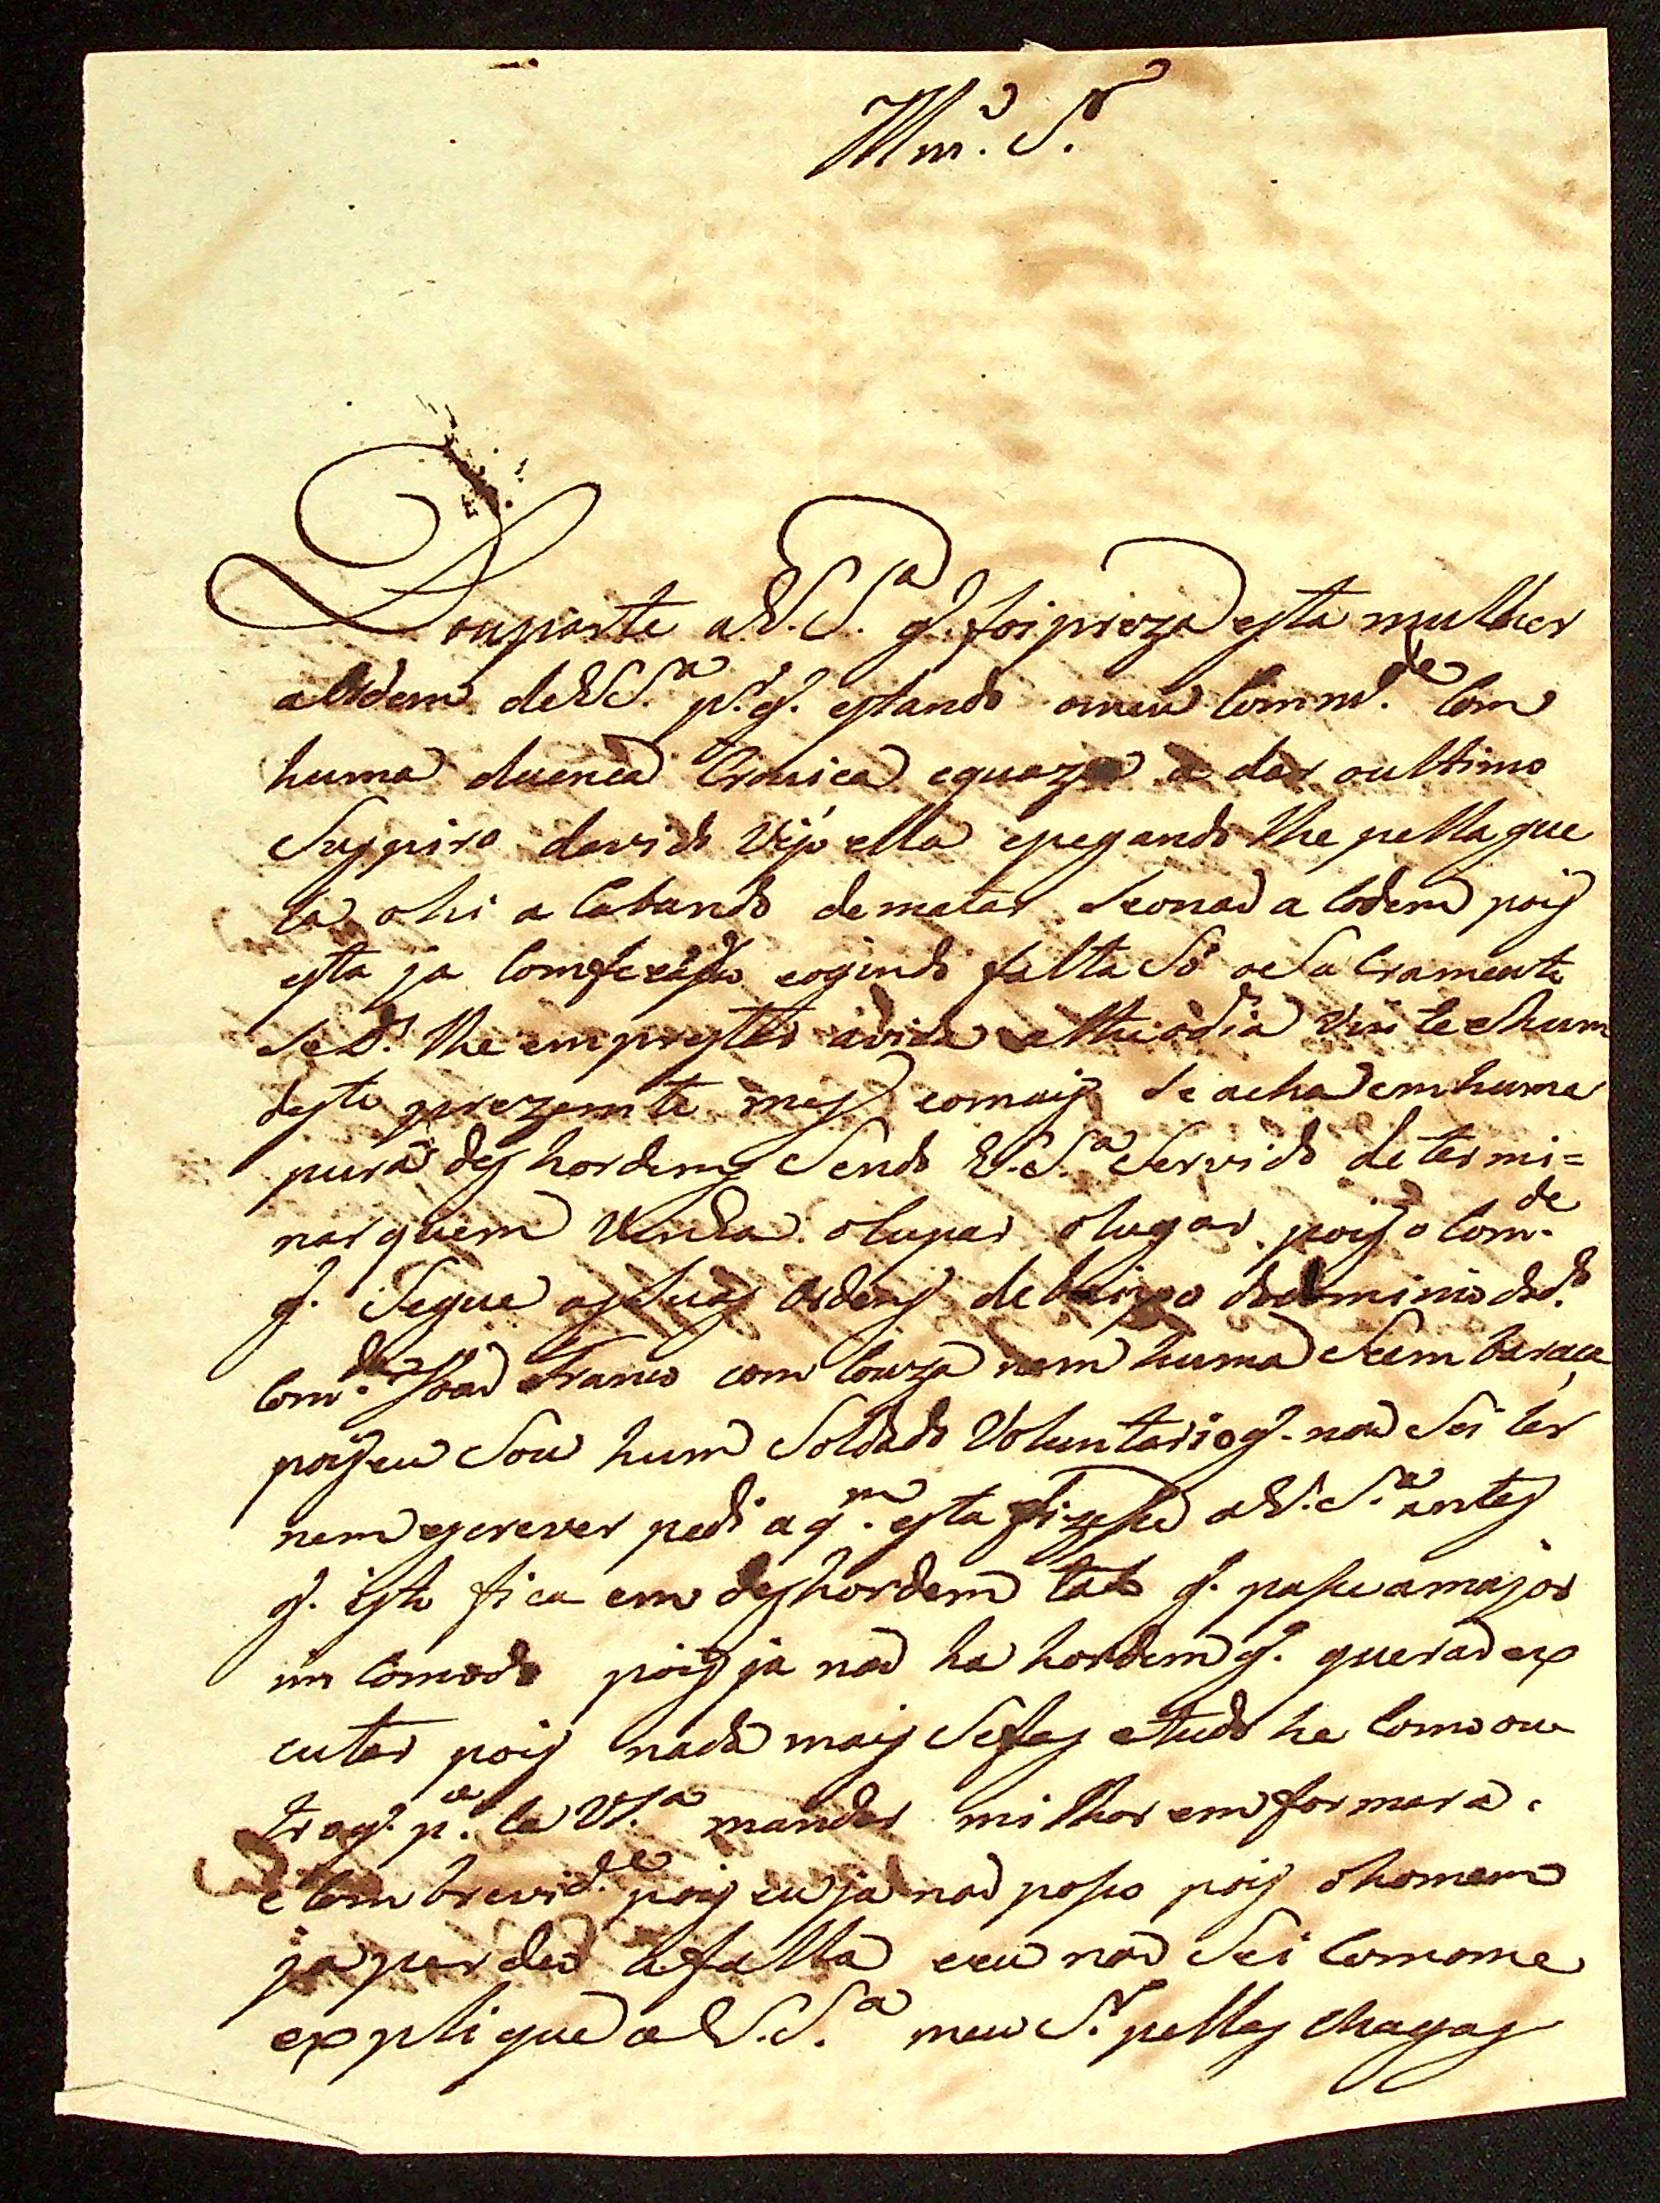 Illmº. Sr.
Douparte aV.S.ª q̃. foi preza esta mulher
a Ordem deVS.ª p.r q̃. estando omeu Comm.de Com
huma duenca Cronica equaze a dar oultimo
Suspiro davido Vejo ella epegando lhe pella gue
la ohi a Cabando dematar Seonaõ a Codem pois
esta ja Comfeçado eogindo falta Só oSaCramento
SeD.s lhe emprestar avida atheodia Vinte ehum
deste prezemte mes eomais Se acha emhuma
pura deshordems Sendo V.S.ª Servido determi=
nar quem Venha oCupar olugar poiso Com.de
q̃. Segue asSuas Ordens debaixo dodominio dod.º
Com.de Joaõ Franco com Couza nem huma Seembaraca
poiseu Sou hum Soldado Voluntario q̃. naõ Sei ler
nem escrever pedi a q.m esta fizesse aV.S.ª antes
q̃. isto fica em deshordem tal q̃. passe amajor
im Comodo pois ja naõ ha hordem q̃. queraõ ex
cutar pois nada mais Sefas etudo he Comoou
traq̃. p.ª la VS.ª mandar milhor emformara.
e Com brevid.e pois eu ja naõ posso pois ohomem
ja perdeo afalla eeu naõ Sei Comome
explique a V.S.ª meu S.r pellas chagas